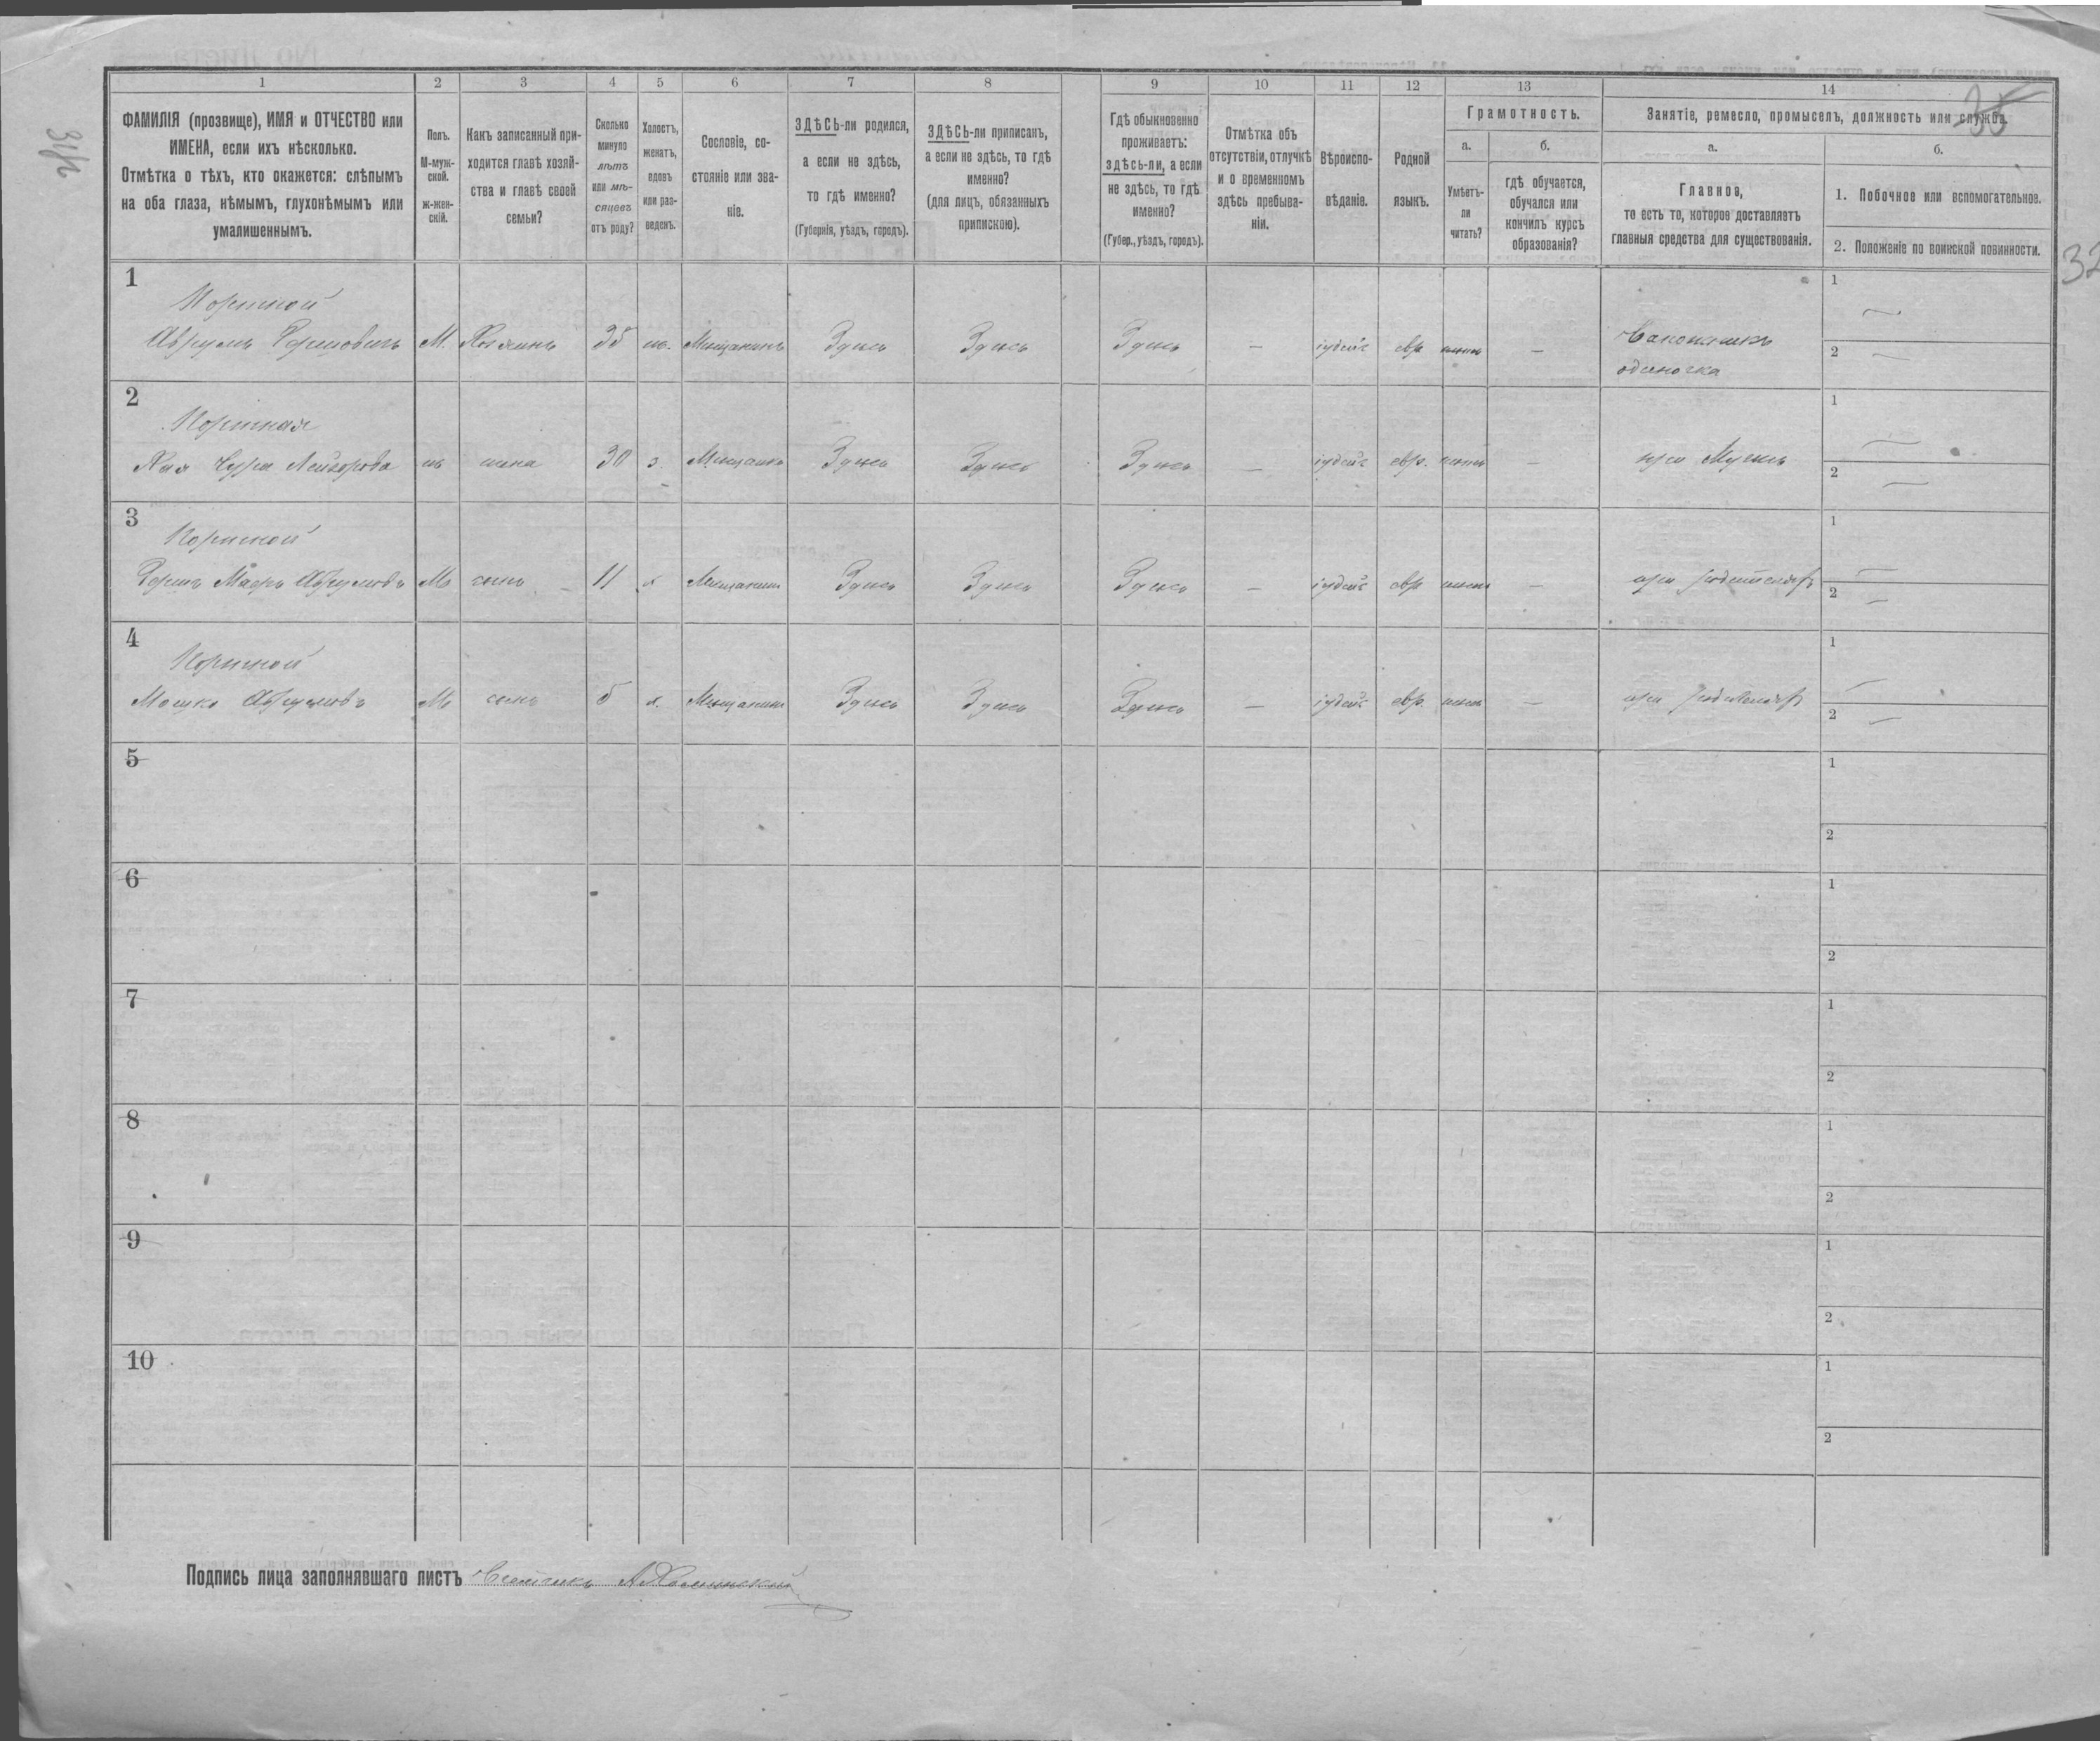 1
2
3
4
5
6
7
8
9
10
11
12
13
14
ФАМИЛІЯ (прозвище), ИМЯ и ОТЧЕСТВО или
ИМЕНА, если ихъ нѣсколько.
Отмѣтка о тѣхъ, кто окажется: слѣпымъ
на оба глаза, нѣмымъ, глухонѣмымъ или
умалишеннымъ.
Полъ.
М-муж-
ской.
ж-жен-
скій.
Какъ записанный при-
ходится главѣ хозяй-
ства и главѣ своей
семьи?
Сколько
минуло
лѣтъ
или мѣ-
сяцевъ
отъ роду?
Холостъ,
женатъ,
вдовъ
или раз-
веденъ.
Сословіе, со-
стояніе или зва-
ніе.
ЗДѢСЬ-ли родился,
а если не здѣсь,
то гдѣ именно?
(Губернія, уѣздъ, городъ).
ЗДѢСЬ-ли приписанъ,
а если не здѣсь, то гдѣ
именно?
(для лицъ, обязанныхъ
припискою).
Гдѣ обыкновенно
проживаетъ:
здѣсь-ли, а если
не здѣсь, то гдѣ
именно?
(Губер., уѣздъ, городъ).
Отмѣтка объ
отсутствіи, отлучкѣ
и о временномъ
здѣсь пребыва-
ніи.
Вѣроиспо-
вѣданіе.
Родной
языкъ.
Грамотность.
а.
Умѣетъ-
ли
читать?
б.
гдѣ обучается,
обучался или
кончилъ курсъ
образованія?
Занятіе, ремесло, промыселъ, должность или служба.
а.
Главное,
то есть то, которое доставляетъ
главныя средства для существованія.
б.
1. Побочное или вспомогательное.
2. Положеніе по воинской повинности.
1
Портной
Аврумъ Гершовичъ М. Хозяинъ 35 ж. Мѣщанинъ Здѣсь Здѣсь Здѣсь — іудейс евр — Сапожникъ
одиночка
1
2
2
Портная
Хая Сура Лейзорова ж жена 30 з. Мѣщанка Здѣсь Здѣсь Здѣсь — іудейс евр. — при Мужѣ
1
2
3
Портной
Герш Маеръ Аврумовъ М сынъ 11 х Мѣщанинъ Здѣсь Здѣсь Здѣсь — іудейс евр — при родителяхъ
1
2
4
Портной
Мошко Аврумовъ М сынъ 5 х. Мѣщанинъ Здѣсь Здѣсь Здѣсь — іудейс евр. — при родителяхъ
1
2
5
1
2
6
1
2
7
1
2
8
1
2
9
1
2
10
1
2
Подпись лица заполнявшаго листъ Счетчикъ
32